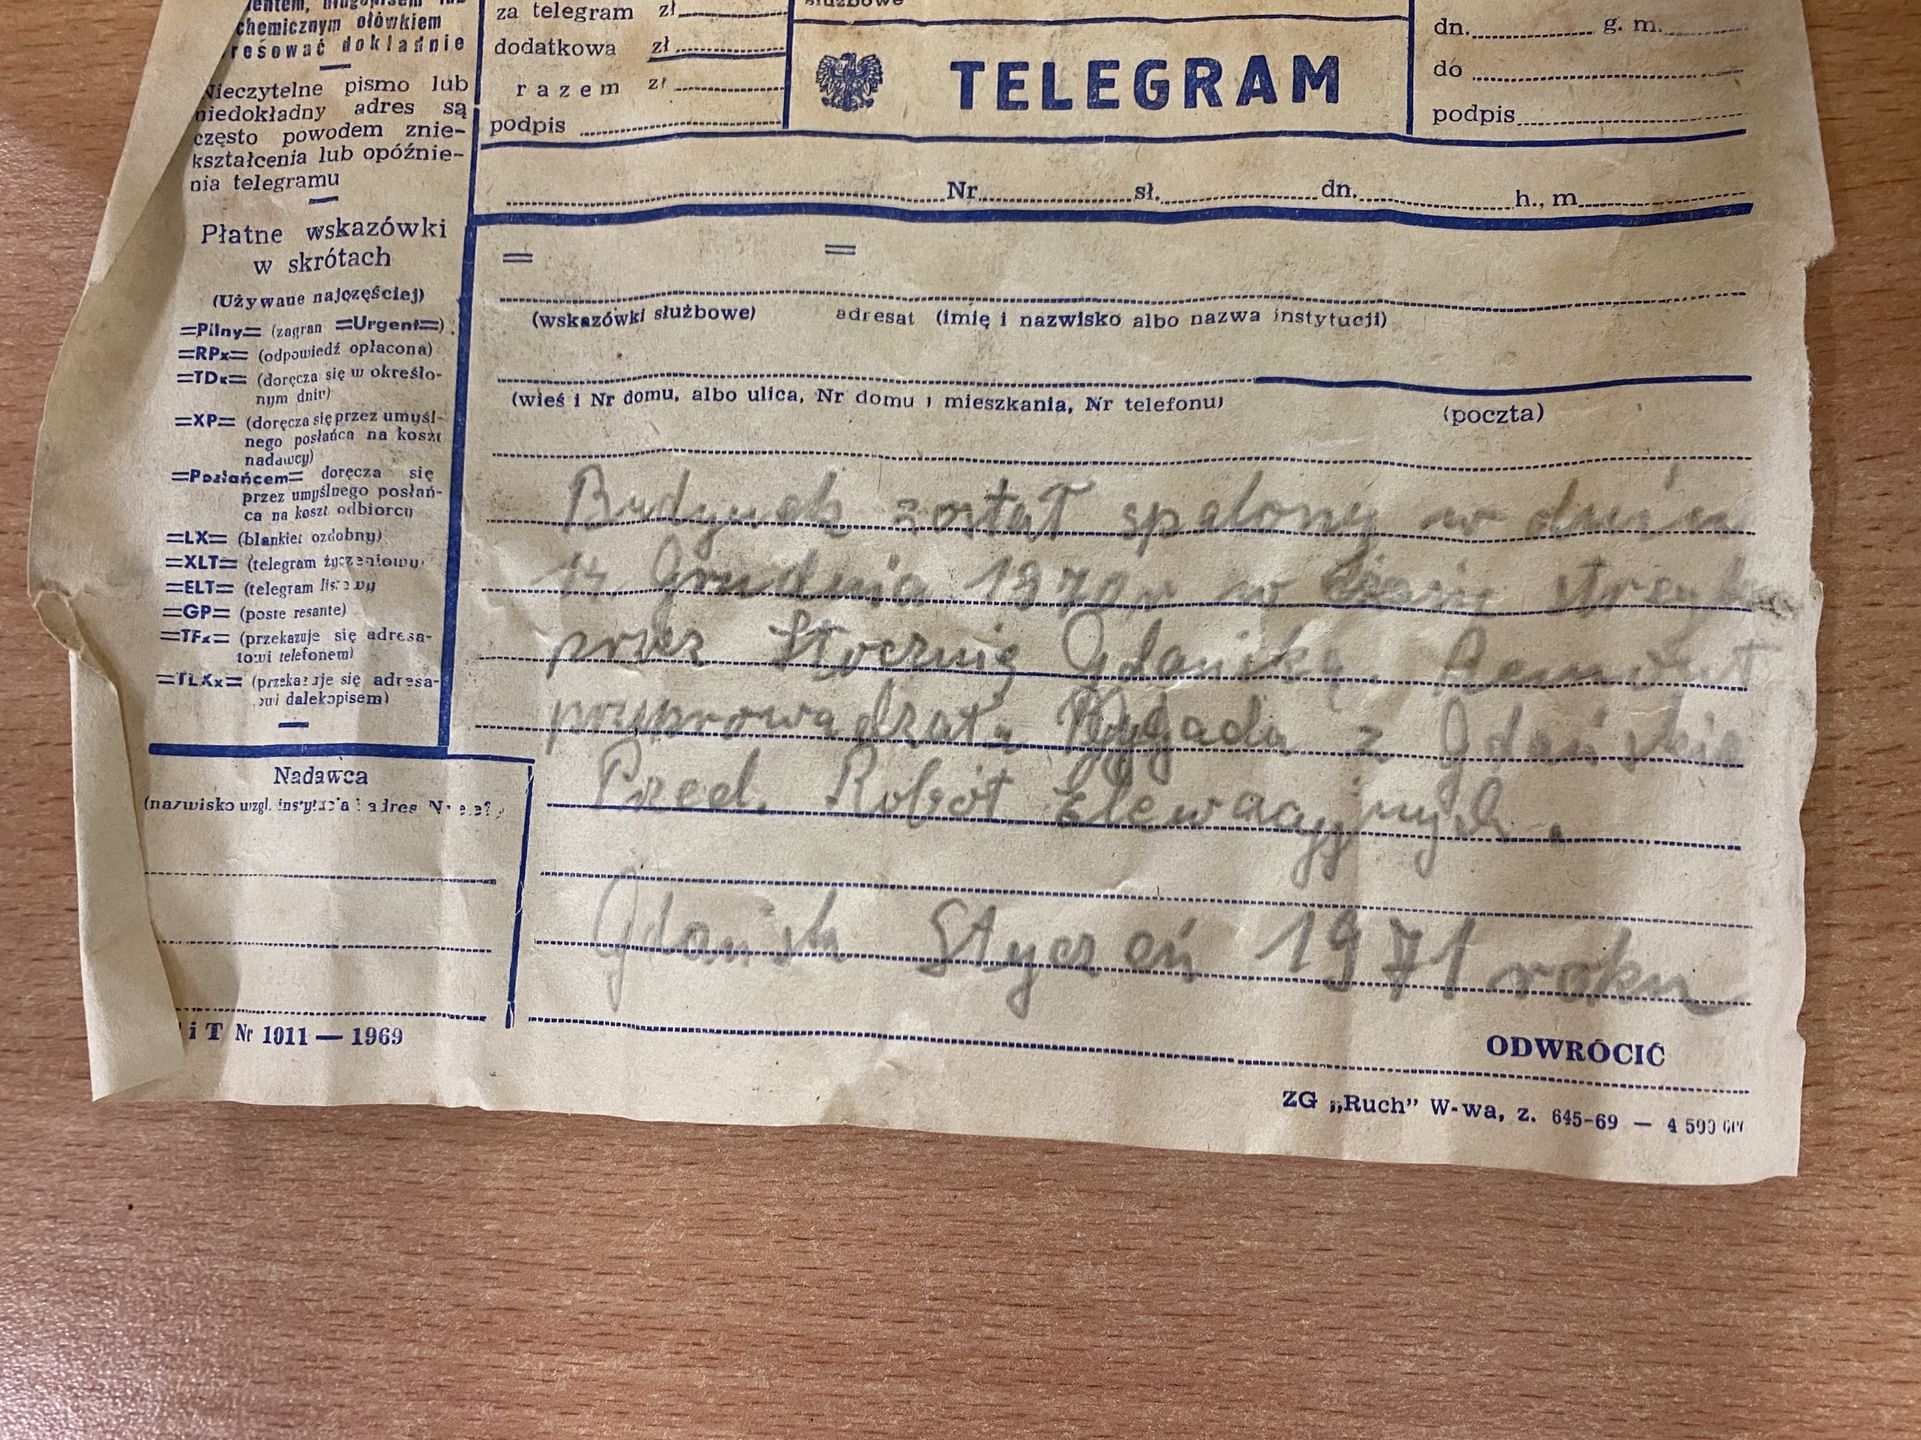 chemicznym ołówkiem
dokładnie
Nieczytelne pismo lub
niedokładny adres są
często powodem znie-
kształcenia lub opóźnie-
nia telegramu
Płatne wskazówki
w skrótach
(Używane najczęściej)
=Pilny= (zagran =Urgent=)
=RPx= (odpowiedź opłacona)
=TDx= (doręcza się w określo-
nym dniu)
=XP= (doręcza się przez umyśl-
nego posłańca na koszt
nadawcy)
=Posłańcem= doręcza się
przez umyślnego posłań-
ca na koszt odbiorcy
=LX= (blankiet ozdobny)
=XLT= (telegram życzeniowy)
=ELT= (telegram listowy
=GP= (poste resante)
=TFx= (przekazuje się adresa-
towi telefonem)
=TLXx= (przekazuje się adresa-
towi dalekopisem)
za telegram zł
dodatkowa zł
razem zł
podpis
TELEGRAM
dn. g. m.
do
podpis
Nr sł. dn. h., m
= =
(wskazówki służbowe) adresat (imię i nazwisko albo nazwa instytucji)
(wieś i Nr domu, albo ulica, Nr domu i mieszkania, Nr telefonu)
(poczta)
Budynek został spalony w dniu
Grudnia 1970 r w czasie
przez Stocznię Gdańską. Remont
przeprowadzała Brygada z Gdańskie
Przed. Robót Elewacyjnych.
Gdańsk Styczeń 1971 roku
Nadawca
(nazwisko wzgl. instytucja i adres
iT Nr 1011 — 1969
ODWRÓCIĆ
ZG „Ruch” W-wa, z. 645-69 — 4 500